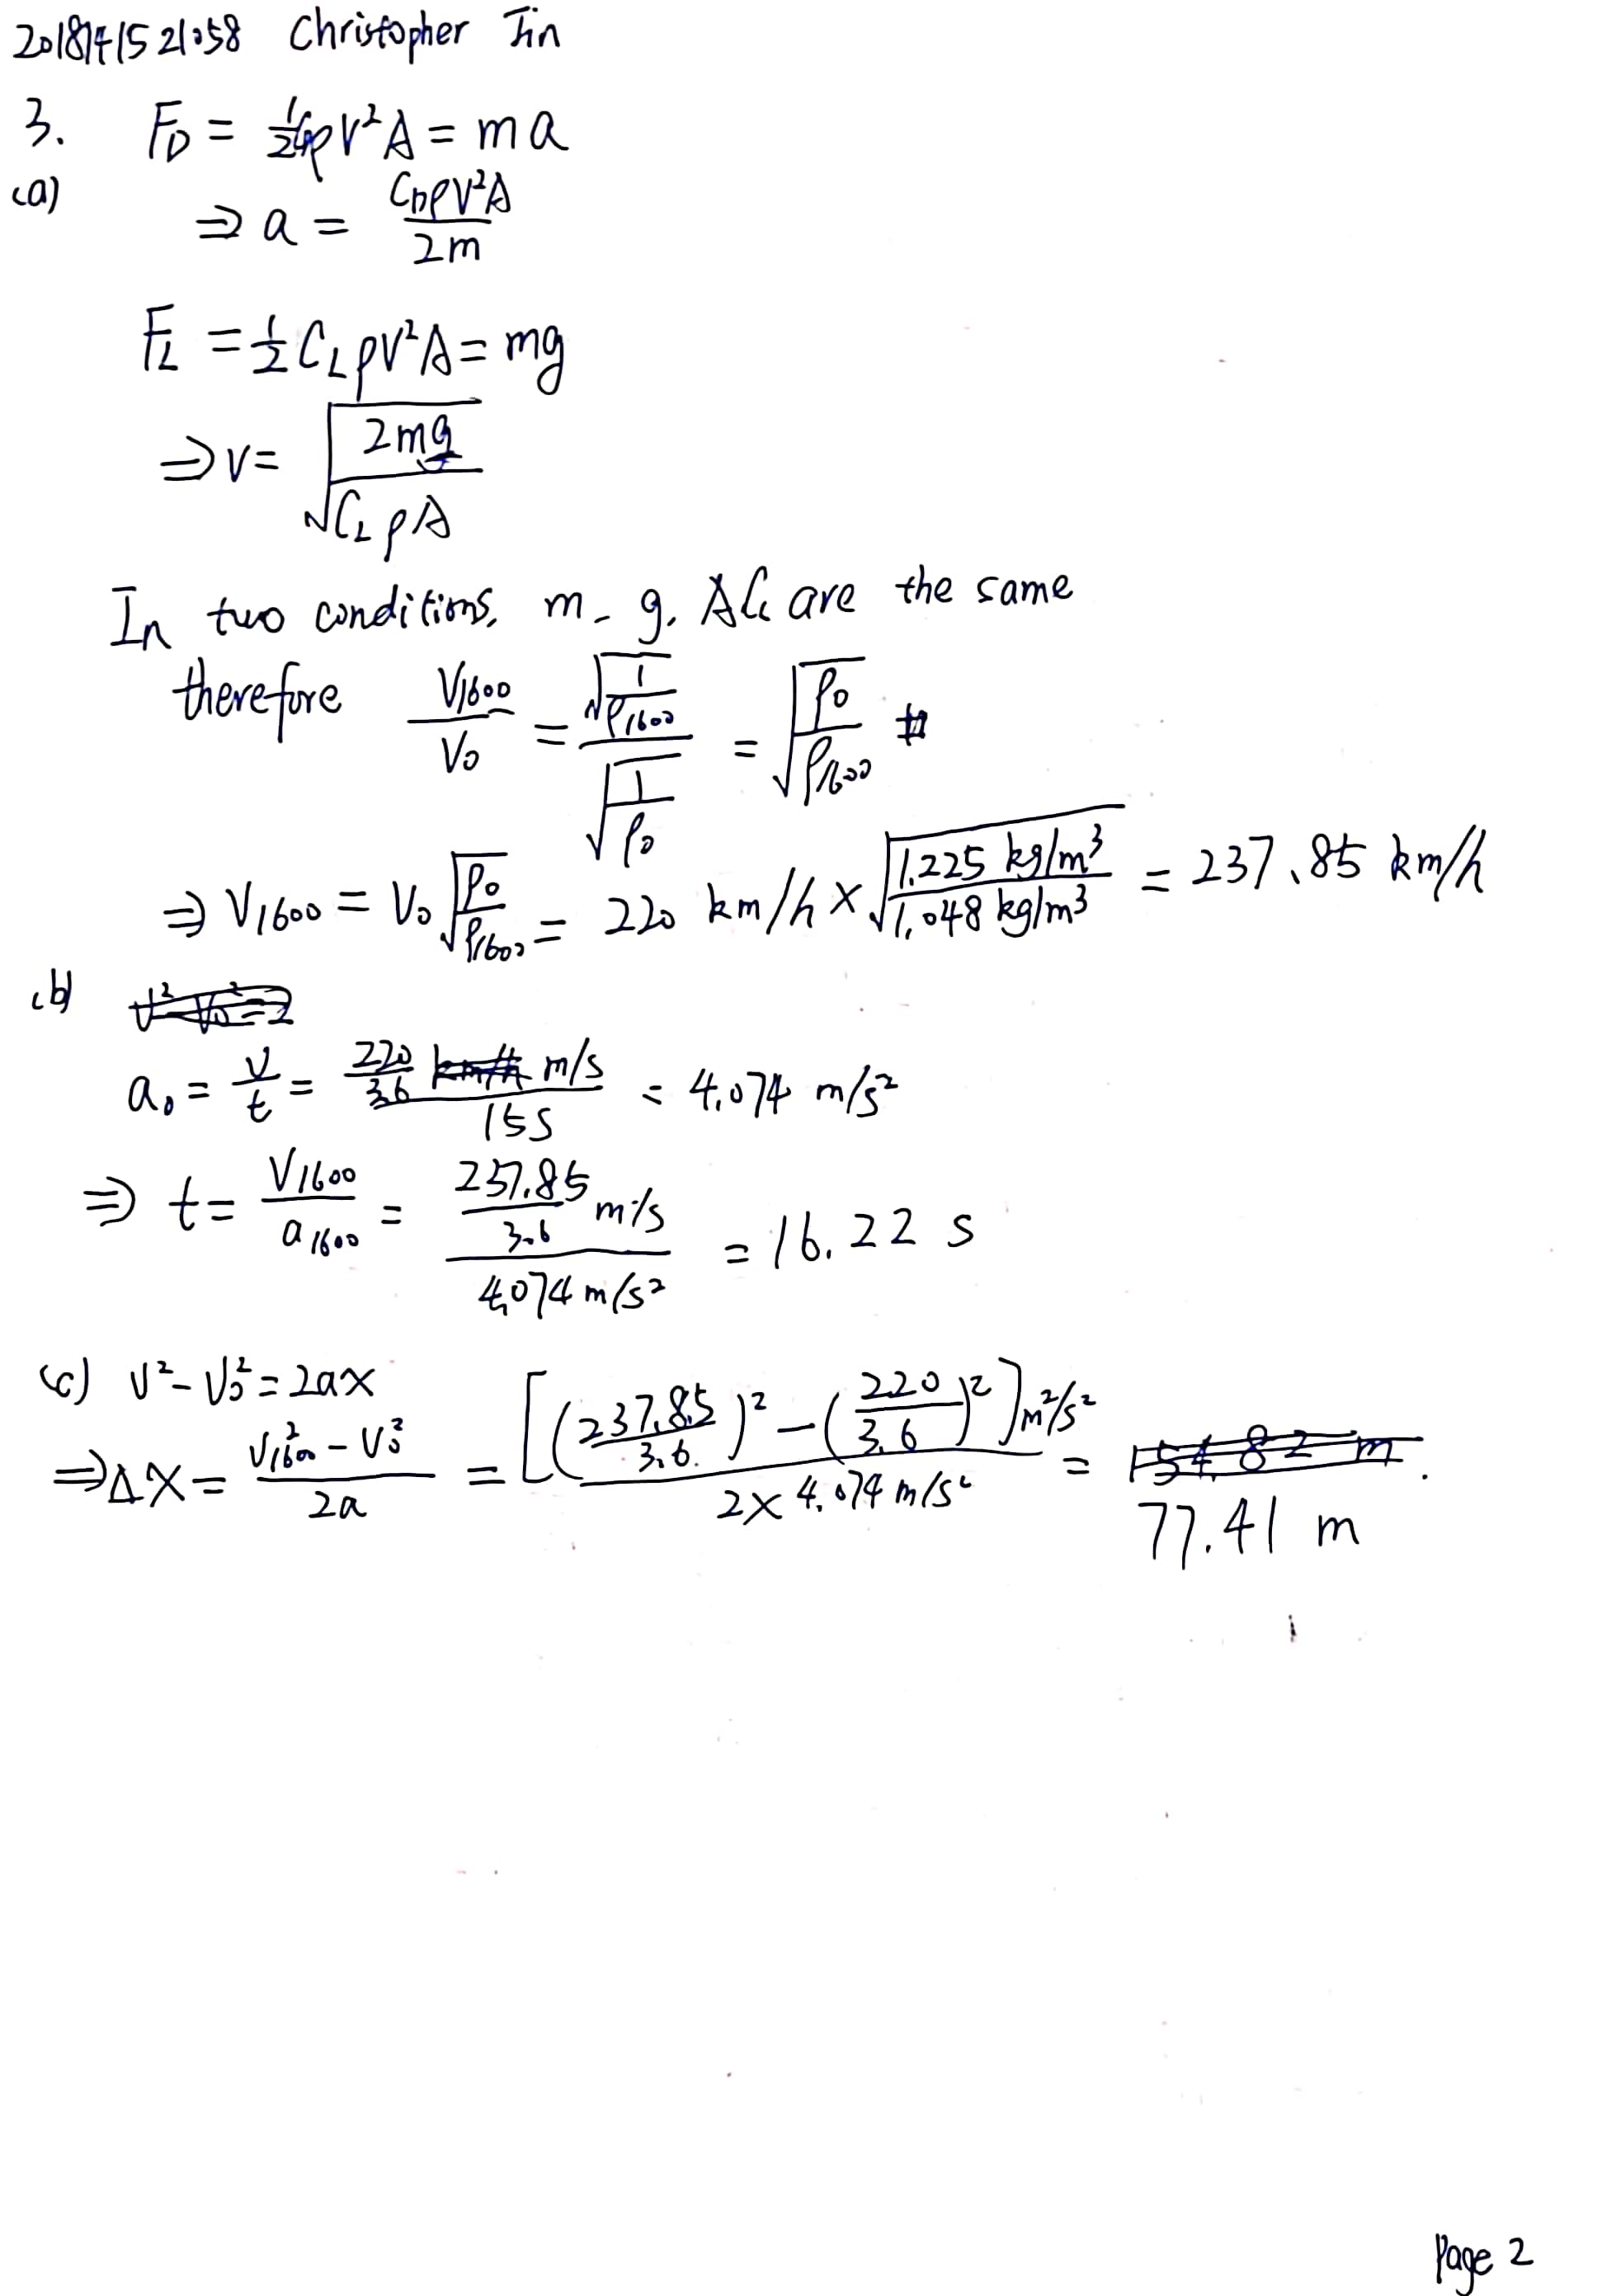 2018141521058 Christopher Jin
3. F_D = ½ C_D ρV²A = ma
(a) ⇒ a = C_DρV²A / 2m
F_L = ½ C_L ρV²A = mg
⇒ V = √(2mg / C_L ρA)
In two conditions, m, g, A C_L are the same
therefore V₁₆₀₀/V₀ = √(1/ρ₁₆₀₀) / √(1/ρ₀) = √(ρ₀/ρ₁₆₀₀) #
⇒ V₁₆₀₀ = V₀ √(ρ₀/ρ₁₆₀₀) = 220 km/h × √(1.225 kg/m³ / 1.048 kg/m³) = 237.85 km/h
(b) V² - V₀² = 2
a₀ = V/t = (220/3.6 km/h m/s) / 15s = 4.074 m/s²
⇒ t = V₁₆₀₀/a₁₆₀₀ = (237.85/3.6 m/s) / (4.074 m/s²) = 16.22 s
(c) V² - V₀² = 2ax
⇒ ΔX = (V₁₆₀₀² - V₀²) / 2a = [(237.85/3.6)² - (220/3.6)²] m²/s² / (2 × 4.074 m/s²) = 154.82 m.
77.41 m
Page 2